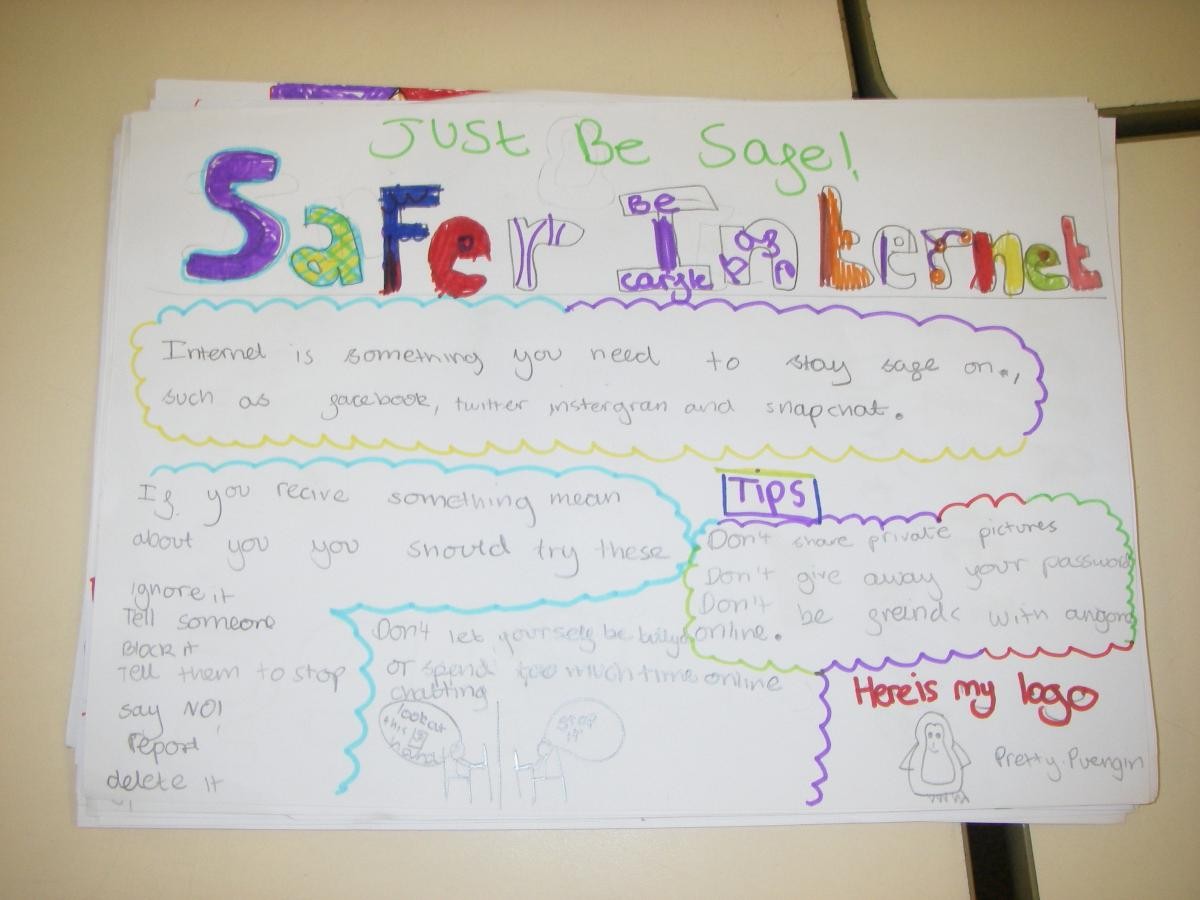 JUST Be Sage!
Safer Internet
Be
cargle
Internet is something you need to stay sage on.,
such as gacebook, twitter instergran and snapchat.
Ig you recive something mean
about you you should try these
ignore it
Tell someone
Block it
Tell them to stop
say NO!
report
delete it
Tips
Don't share private pictures
Don't give away your password
Don't be greinds with
online.
Don't let yourselg be
or spend too much time online
chatting
look at
this
stop
it
Here is my logo
Pretty. Puengin